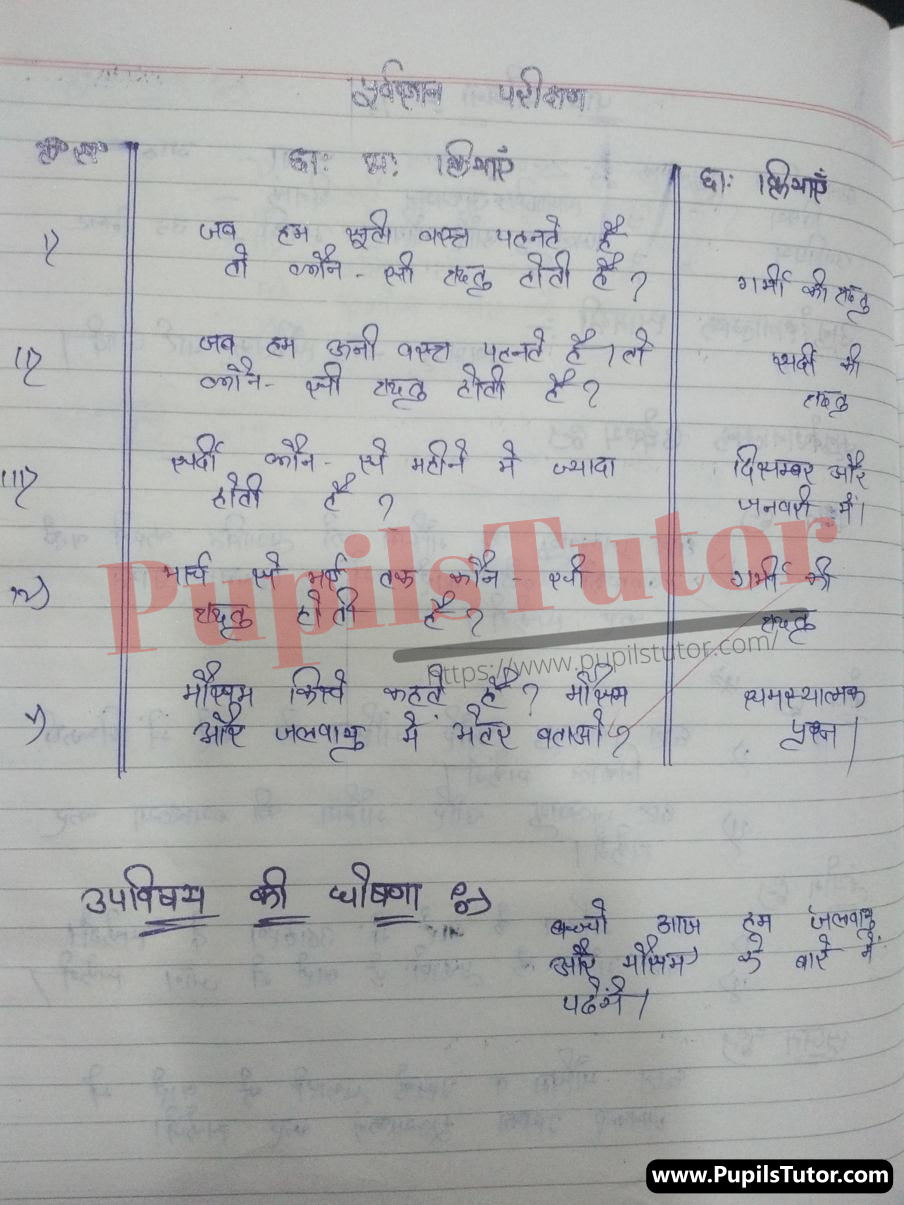 पूर्वज्ञान परीक्षण
क्र॰ स॰ छा: अ: क्रियाएं छा: क्रियाएं
i) जब हम सूती वस्त्र पहनते है
तो कौन - सी ऋतु होती है ? गर्मी की ऋतु
ii) जब हम ऊनी वस्त्र पहनते है । तो सर्दी की
कौन - सी ऋतु होती है ? ऋतु
iii) सर्दी कौन - से महीने मे ज्यादा दिसम्बर और
होती है ? जनवरी में।
iv) मार्च से मई तक कौन - सी गर्मी की
ऋतु होती है ? ऋतु
v) मौसम किसे कहते है ? मौसम समस्यात्मक
और जलवायु मे अंतर बताओ ? प्रश्न ।
उपविषय की घोषणा
बच्चो आज हम जलवायु
और मौसम के बारे में
पढेंगे ।
PupilsTutor
https://www.pupilstutor.com/
www.PupilsTutor.com